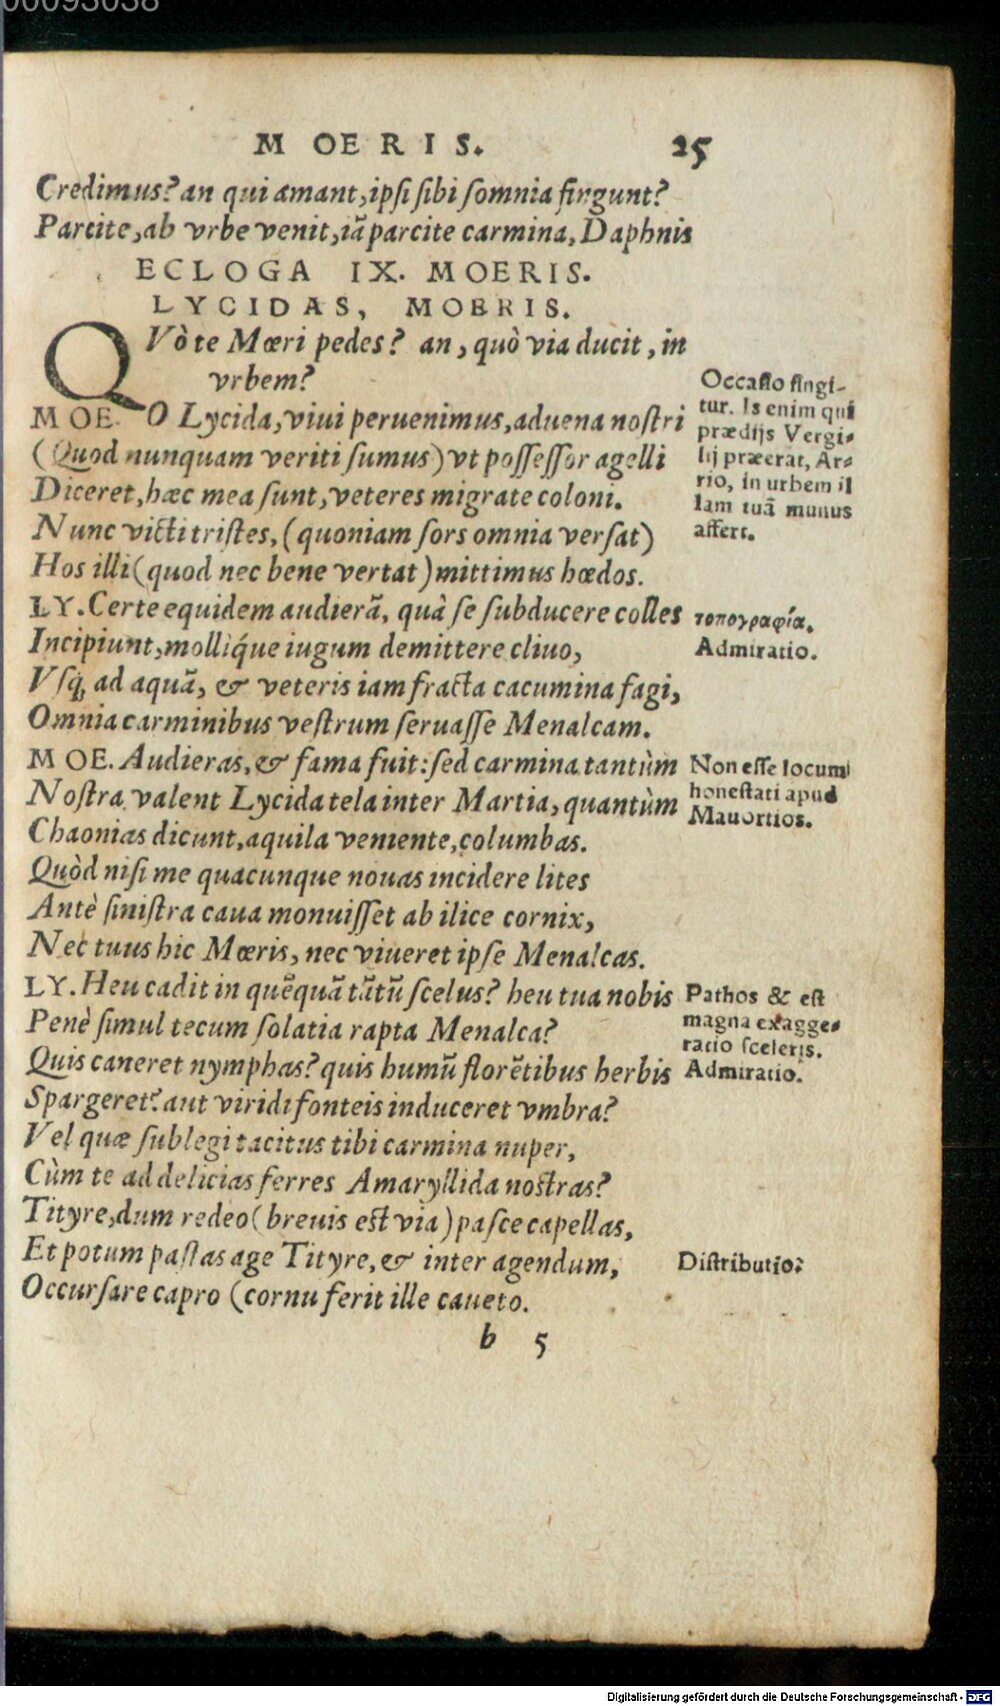 00093038
MOERIS. 25
Credimus? an qui amant, ipsi sibi somnia fingunt?
Parcite, ab vrbe venit, iã parcite carmina, Daphnis
ECLOGA IX. MOERIS.
LYCIDAS, MOERIS.
QVò te Mœri pedes? an, quò via ducit, in
vrbem?
MOE. O Lycida, viui peruenimus, aduena nostri
(Quod nunquam veriti sumus) vt possessor agelli
Diceret, hæc mea sunt, veteres migrate coloni.
Nunc victi tristes, (quoniam sors omnia versat)
Hos illi (quod nec bene vertat) mittimus hœdos.
LY. Certe equidem audierã, quà se subducere colles
Incipiunt, molliq́ue iugum demittere cliuo,
Vsq̃ ad aquã, & veteris iam fracta cacumina fagi,
Omnia carminibus vestrum seruasse Menalcam.
MOE. Audieras, & fama fuit: sed carmina tantùm
Nostra valent Lycida tela inter Martia, quantùm
Chaonias dicunt, aquila veniente, columbas.
Quòd nisi me quacunque nouas incidere lites
Antè sinistra caua monuisset ab ilice cornix,
Nec tuus hic Mœris, nec viueret ipse Menalcas.
LY. Heu cadit in quẽquã tãtũ scelus? heu tua nobis
Penè simul tecum solatia rapta Menalca?
Quis caneret nymphas? quis humũ florẽtibus herbis
Spargeret? aut viridi fonteis induceret vmbra?
Vel quæ sublegi tacitus tibi carmina nuper,
Cùm te ad delicias ferres Amaryllida nostras?
Tityre, dum redeo (breuis est via) pasce capellas,
Et potum pastas age Tityre, & inter agendum,
Occursare capro (cornu ferit ille caueto.
b 5
Occasio fingi-
tur. Is enim qui
prædijs Vergi-
lij præerat, Ar-
rio, in urbem il
lam tuã munus
affert.
τοπογραφία.
Admiratio.
Non esse locum
honestati apud
Mauortios.
Pathos & est
magna exagge-
ratio sceleris.
Admiratio.
Distributio:
Digitalisierung gefördert durch die Deutsche Forschungsgemeinschaft - DFG